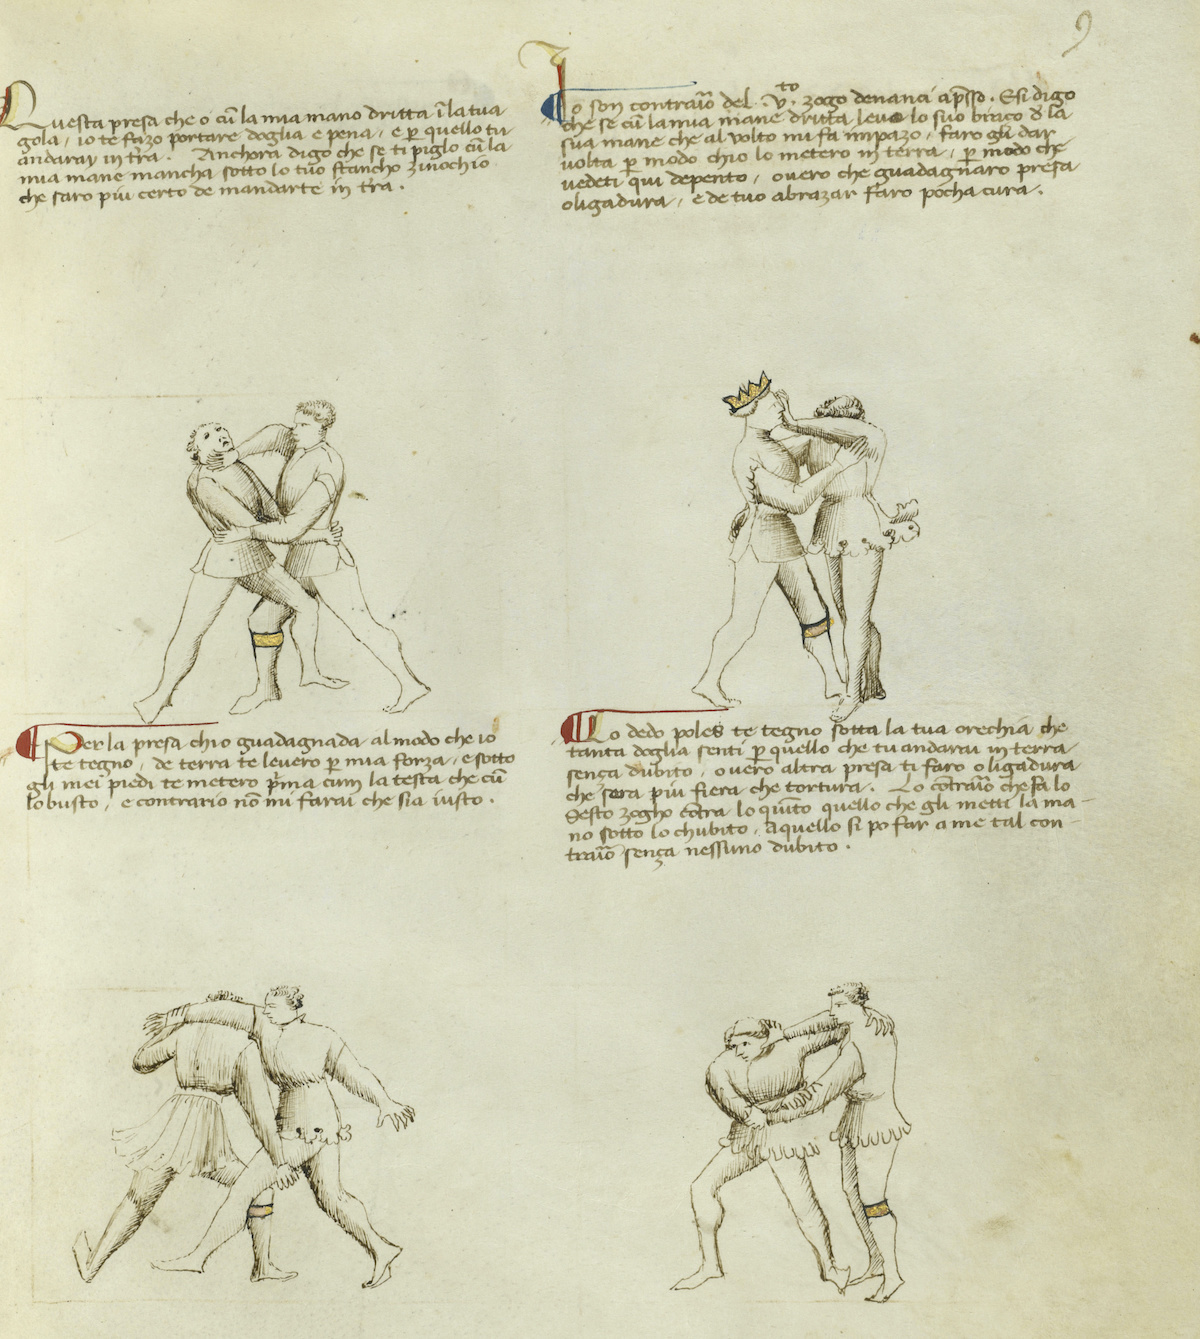 9
Questa presa che o cũ la mia mano dritta ĩ la tua
gola, io te fazo portare doglia e pena, e p quello tu
andarai in tra. Anchora digo che se ti piglo cũ la
mia mane mancha sotto lo tuo stancho zinochio
che saro piu certo de mandarte in tra.
Io son contraiõ del .v.to zogo denanci apsso. E si digo
che se cũ la mia mane dritta levo lo suo braco d la
sua mane che al volto mi fa impazo, faro gli dar
volta p modo chio lo metero in terra, p modo che
vedeti qui depento, overo che guadagnaro presa
o ligadura, e de tuo abrazar faro pocha cura.
Per la presa chio guadagnada al modo che io
te tegno, de terra te levero p mia forza, e sotto
gli mei piedi te metero pma cum la testa che cũ
lo busto, e contrario nõ mi farai che sia iusto.
Lo dedo poles te tegno sotta la tua orechia che
tanta doglia senti p quello che tu andarai in terra
sença dubito, overo altra presa ti faro o ligadura
che sera piu fiera che tortura. Lo cõtraiõ che fa lo
Sesto zogho cõtra lo quĩto quello che gli metti la ma-
no sotto lo chubito, aquello si po far a me tal con-
traiõ sença nessuno dubito.